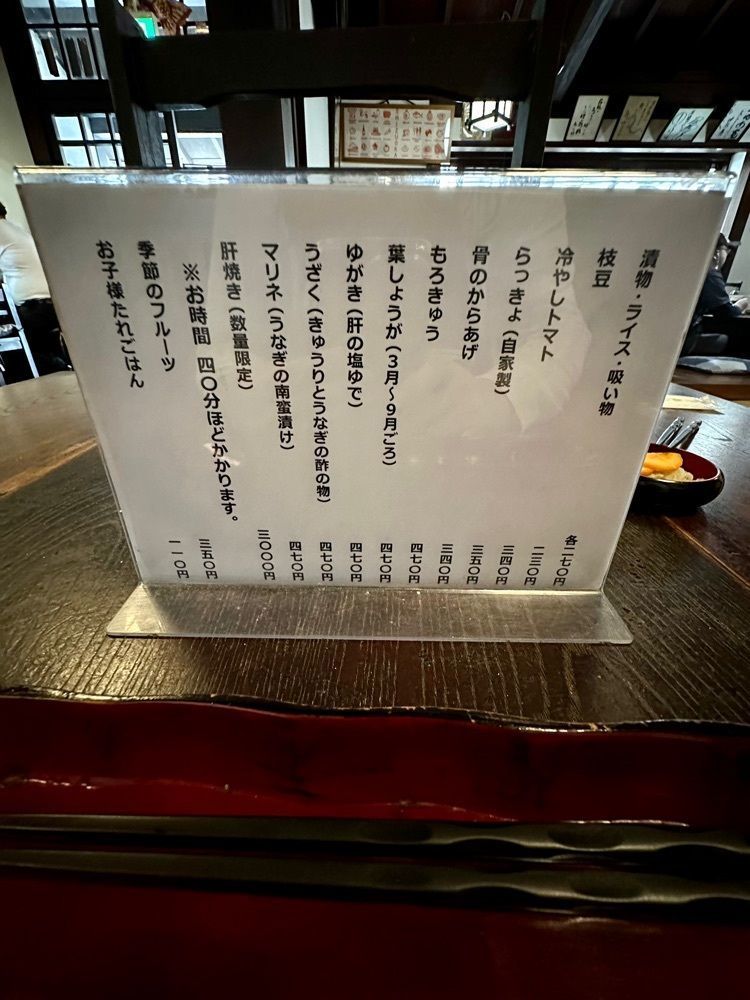 漬物・ライス・吸い物 各二七〇円
枝豆 二三〇円
冷やしトマト 三四〇円
らっきょ（自家製） 三五〇円
骨のからあげ 三四〇円
もろきゅう 四七〇円
葉しょうが（3月〜9月ごろ） 四七〇円
ゆがき（肝の塩ゆで） 四七〇円
うざく（きゅうりとうなぎの酢の物） 四七〇円
マリネ（うなぎの南蛮漬け） 四七〇円
肝焼き（数量限定） 三〇〇〇円
※お時間 四〇分ほどかかります。
季節のフルーツ 三五〇円
お子様たれごはん 一一〇円